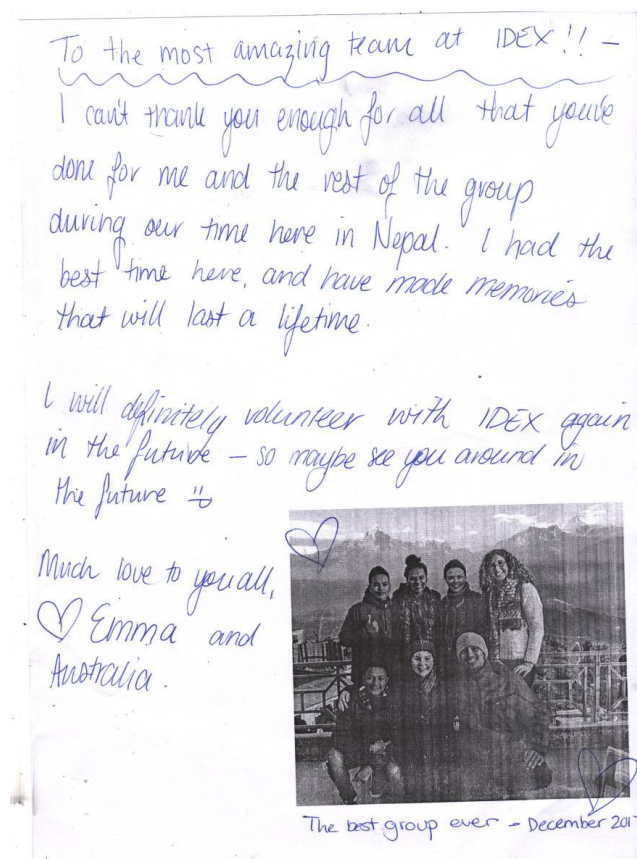 To the most amazing team at IDEX!! –
I can't thank you enough for all that you've
done for me and the rest of the group
during our time here in Nepal. I had the
best time here, and have made memories
that will last a lifetime.
I will definitely volunteer with IDEX again
in the future – so maybe see you around in
the future
Much love to you all,
Emma and
Australia.
The best group ever – December 201